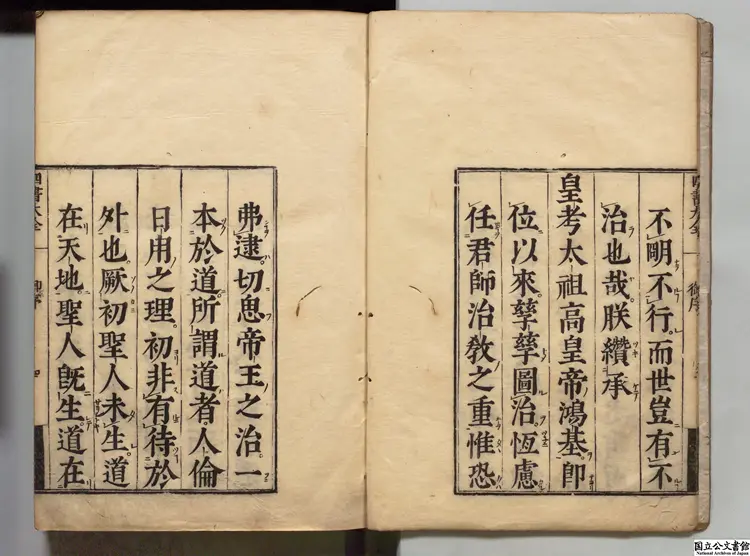 不明不行。而世豈有不
治也哉朕纘承
皇考太祖高皇帝鴻基即
位以來孳孳圖治。恆慮
任君師治教之重惟恐
弗逮切思帝王之治一
本於道所謂道者人倫
日用之理。初非有待於
外也厥初聖人未生道
在天地聖人既生。道在
四書大全
御序
四
国立公文書館
National Archives of Japan